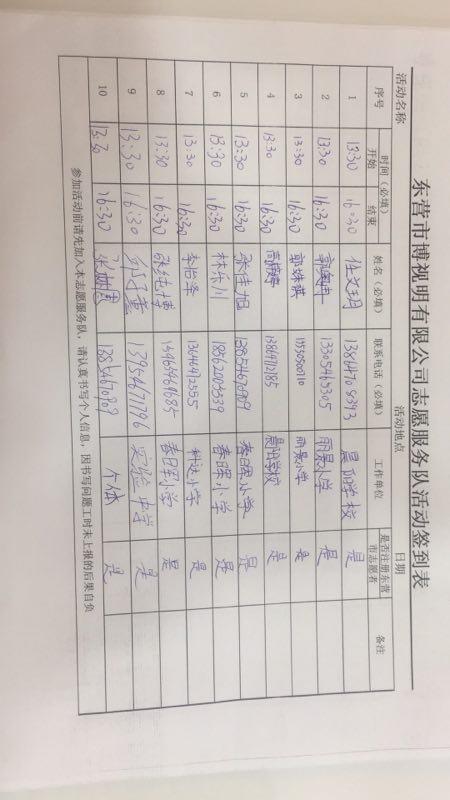 东营市博视明有限公司志愿服务队活动签到表
活动名称 活动地点 日期
序号 时间（必填） 开始 结束 姓名（必填） 联系电话（必填） 工作单位 是否注册东营市志愿者 备注
1 13:30 16:30 任文玥 晨阳学校 是
2 13:30 16:30 13305465305 丽景小学 是
3 13:30 16:30 郭姝琪 丽景小学 是
4 13:30 16:30 晨阳学校 是
5 13:30 16:30 张佳旭 春晖小学 是
6 13:30 16:30 林乐川 18562003339 春晖小学 是
7 13:30 16:30 李怡泽 13646472555 科达小学 是
8 13:30 16:30 15465469685 春晖小学 是
9 13:30 16:30 实验中学 是
10 13:30 16:30 个体 是
参加活动前请先加入本志愿服务队，请认真书写个人信息，因书写问题工时未上报的后果自负